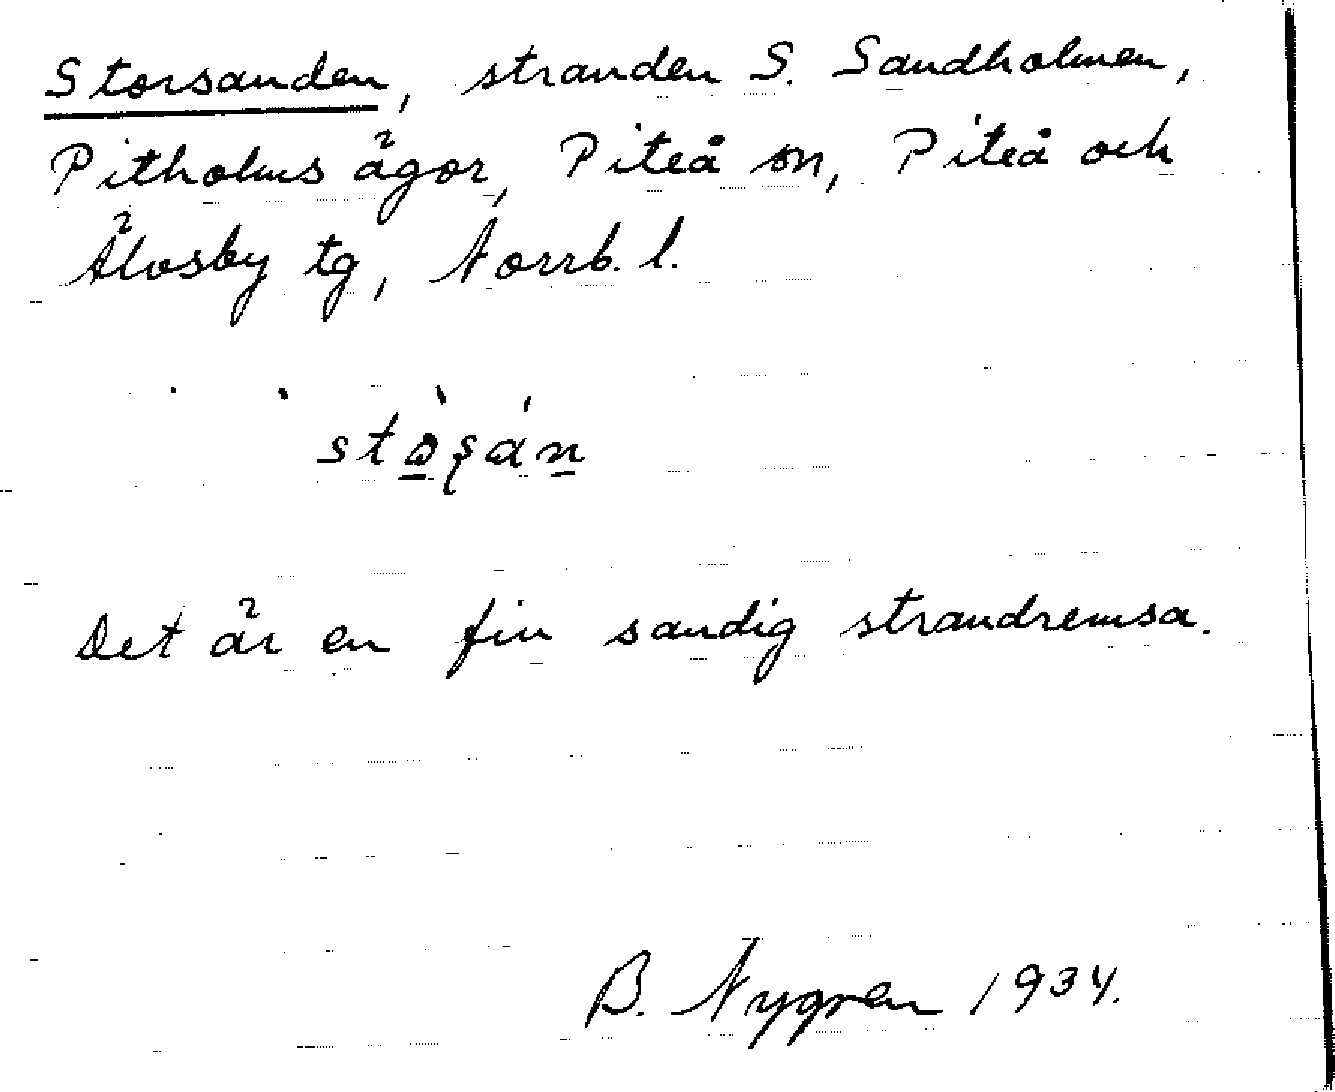 Storsanden, stranden S. Sandholmen,
Pitholms ägor, Piteå sn, Piteå och
Älvsby tg, Norrb. l.
Det är en fin sandig strandremsa.
B. Nygren 1934.